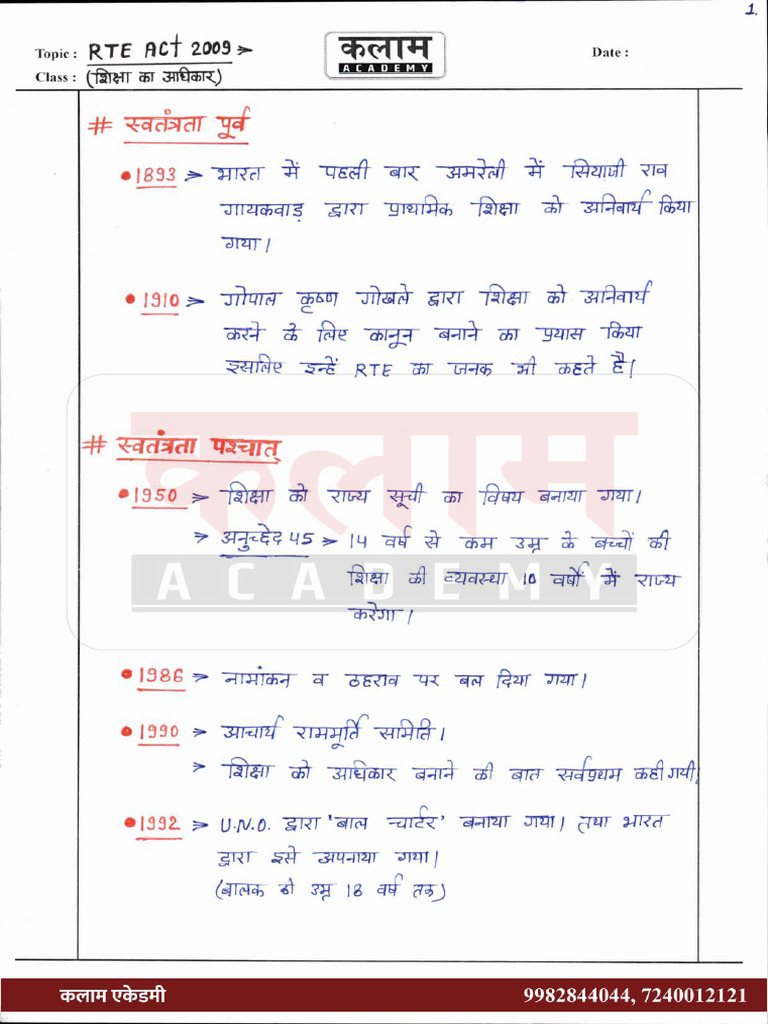 1.
Topic : RTE ACT 2009 →
कलाम
ACADEMY
Date :
Class : (शिक्षा का अधिकार)
# स्वतंत्रता पूर्व
• 1893 → भारत में पहली बार अमरेली में सियाजी राव
गायकवाड़ द्वारा प्राथमिक शिक्षा को अनिवार्य किया
गया।
• 1910 → गोपाल कृष्ण गोखले द्वारा शिक्षा को अनिवार्य
करने के लिए कानून बनाने का प्रयास किया
इसलिए इन्हें RTE का जनक भी कहते है।
# स्वतंत्रता पश्चात्
• 1950 → शिक्षा को राज्य सूची का विषय बनाया गया।
→ अनुच्छेद 45 → 14 वर्ष से कम उम्र के बच्चों की
शिक्षा की व्यवस्था 10 वर्षों में राज्य
करेगा।
कलाम
ACADEMY
• 1986 → नामांकन व ठहराव पर बल दिया गया।
• 1990 → आचार्य राममूर्ति समिति।
→ शिक्षा को अधिकार बनाने की बात सर्वप्रथम कही गयी
• 1992 → U.N.O. द्वारा 'बाल चार्टर' बनाया गया। तथा भारत
द्वारा इसे अपनाया गया।
(बालक की उम्र 18 वर्ष तक)
कलाम एकेडमी
9982844044, 7240012121